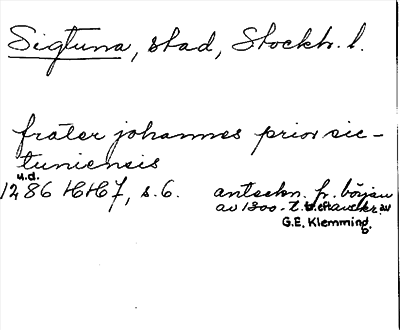 Sigtuna, stad, Stockh. l.
frater johannes prior sic-
tuniensis
u.d.
1286 HH 7, s. 6. antekn. fr. början
av 1800-t. eft. avskr. av
G.E. Klemming.